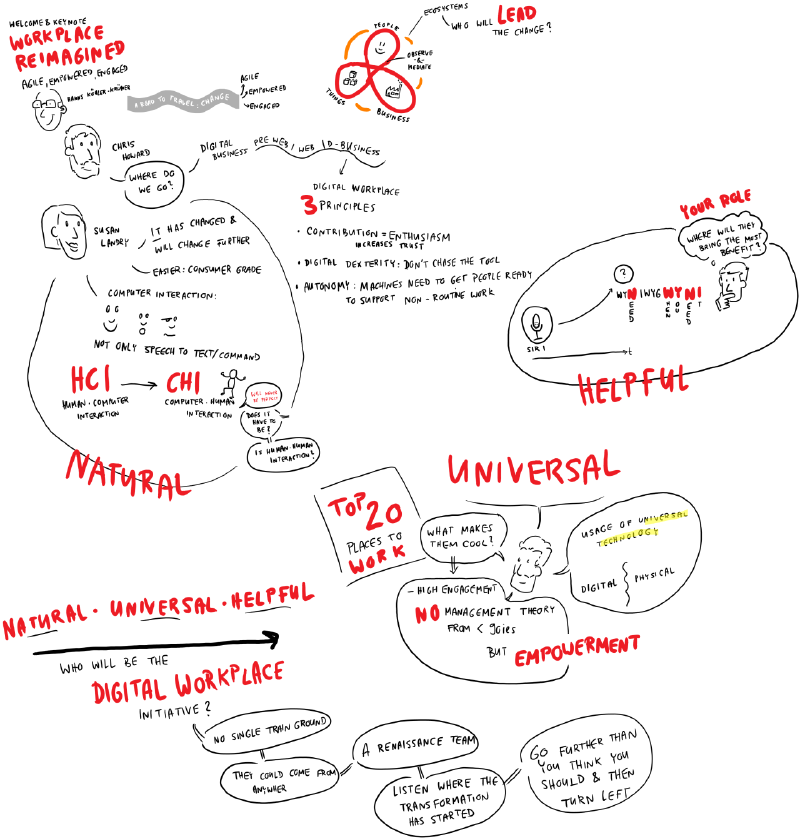 WELCOME & KEYNOTE
WORKPLACE
REIMAGINED
AGILE, EMPOWERED, ENGAGED
A ROAD TO TRAVEL: CHANGE
AGILE
EMPOWERED
ENGAGED
PEOPLE
THINGS
BUSINESS
OBSERVE
&
MEDIATE
ECOSYSTEMS
WHO WILL LEAD
THE CHANGE?
CHRIS
HOWARD
WHERE DO
WE GO?
DIGITAL
BUSINESS
PRE WEB / WEB / D-BUSINESS
DIGITAL WORKPLACE
3 PRINCIPLES
• CONTRIBUTION = ENTHUSIASM
INCREASES TRUST
• DIGITAL DEXTERITY: DON'T CHASE THE TOOL
• AUTONOMY: MACHINES NEED TO GET PEOPLE READY
TO SUPPORT NON-ROUTINE WORK
SUSAN
LANDRY
IT HAS CHANGED &
WILL CHANGE FURTHER
EASIER: CONSUMER GRADE
COMPUTER INTERACTION:
NOT ONLY SPEECH TO TECT/COMMAND
HCI
HUMAN-COMPUTER
INTERACTION
CHI
COMPUTER-HUMAN
INTERACTION
WILL NEVER
BE PERFECT
DOES IT
HAVE TO
BE?
IS HUMAN-HUMAN
INTERACTION?
NATURAL
YOUR ROLE
WHERE WILL THEY
BRING THE MOST
BENEFIT?
?
WYNIWYG WYNI
NEED
WHEN
YOU
NEED
IT
SIRI
t
HELPFUL
UNIVERSAL
TOP
20
PLACES TO
WORK
WHAT MAKES
THEM COOL?
USAGE OF UNIVERSAL
TECHNOLOGY
DIGITAL { PHYSICAL
- HIGH ENGAGEMENT
NO MANAGEMENT THEORY
FROM < 90ies
BUT EMPOWERMENT
NATURAL · UNIVERSAL · HELPFUL
WHO WILL BE THE
DIGITAL WORKPLACE
INITIATIVE?
NO SINGLE TRAIN GROUND
THEY COULD COME FROM
ANYWHER
A RENAISSANCE TEAM
LISTEN WHERE THE
TRANSFORMATION
HAS STARTED
GO FURTHER THAN
YOU THINK YOU
SHOULD & THEN
TURN LEFT